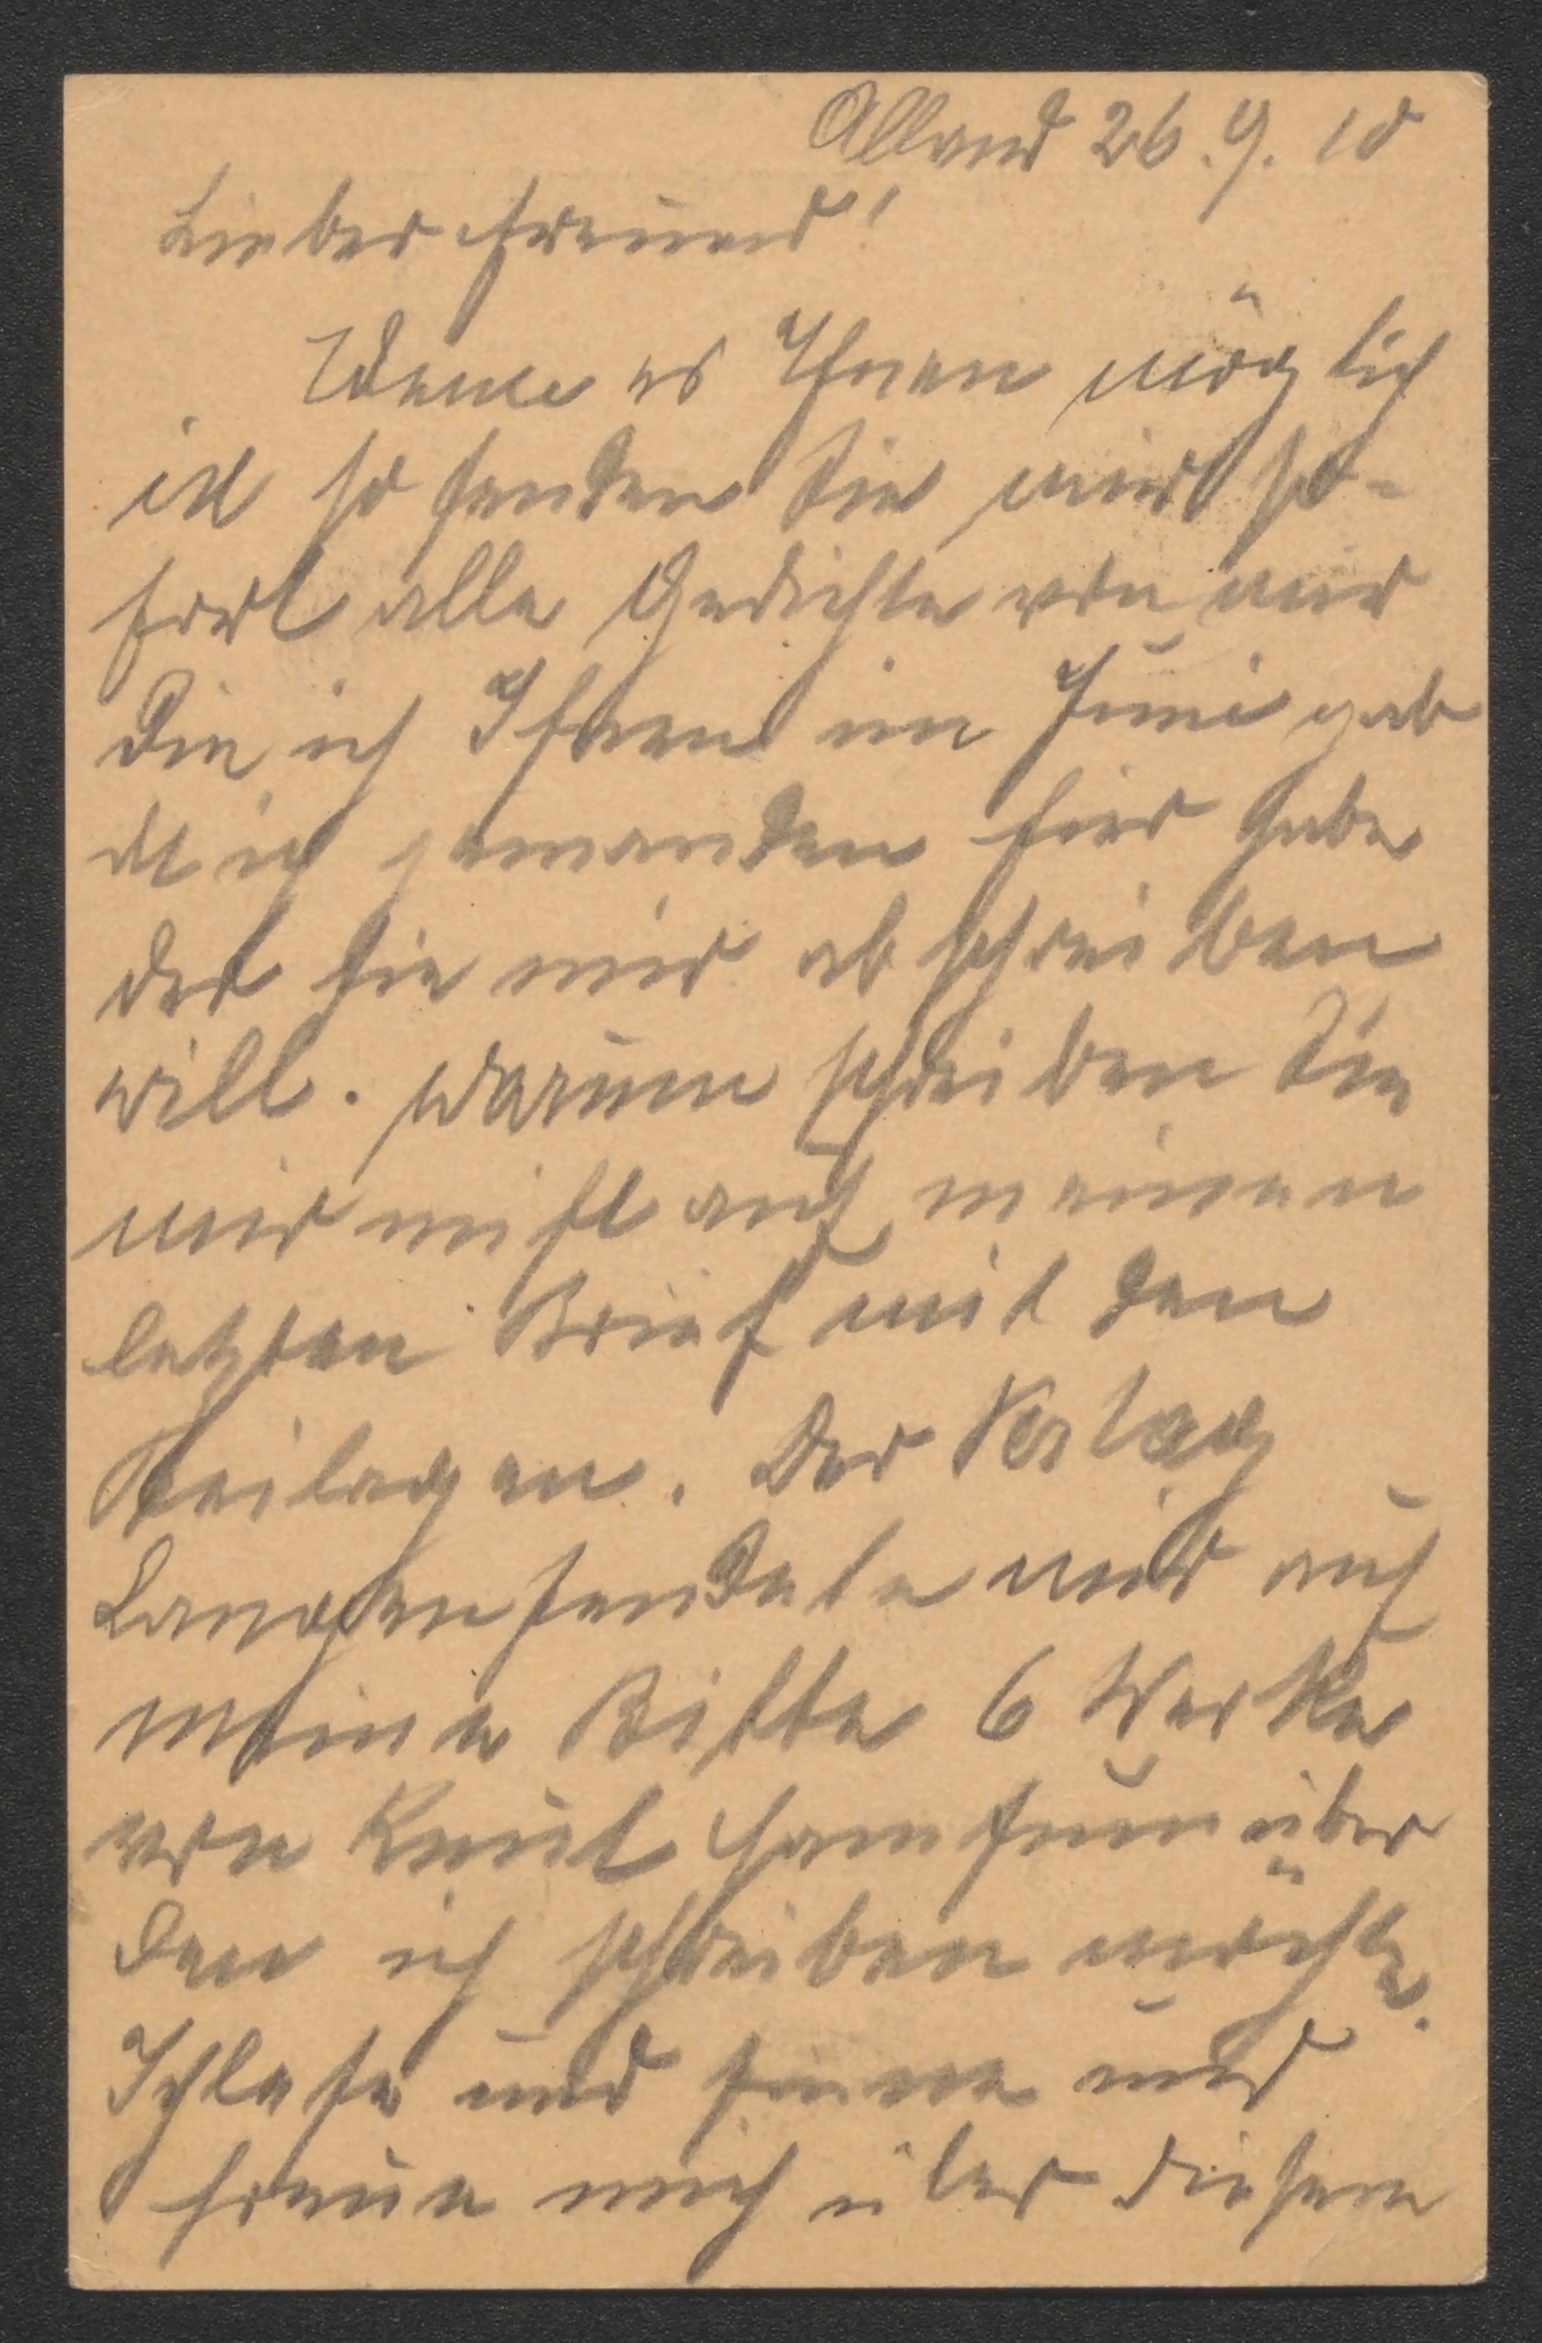 Alland 26.9.18
Lieber Freund!
Wenn es Ihnen möglich
ist so senden Sie mir so-
fort alle Gedichte von mir
die ich Ihnen im Juni gab
da ich jemanden hier habe
der sie mir abschreiben
will. Warum schreiben Sie
mir nicht auf meinen
letzten Brief mit den
Beilagen. Der Verlag
Langen sendete mir auf
meine Bitte 6 Werke
von Knut Hamsun über
den ich schreiben möchte.
Ich lese und sinne und
freue mich über diesen